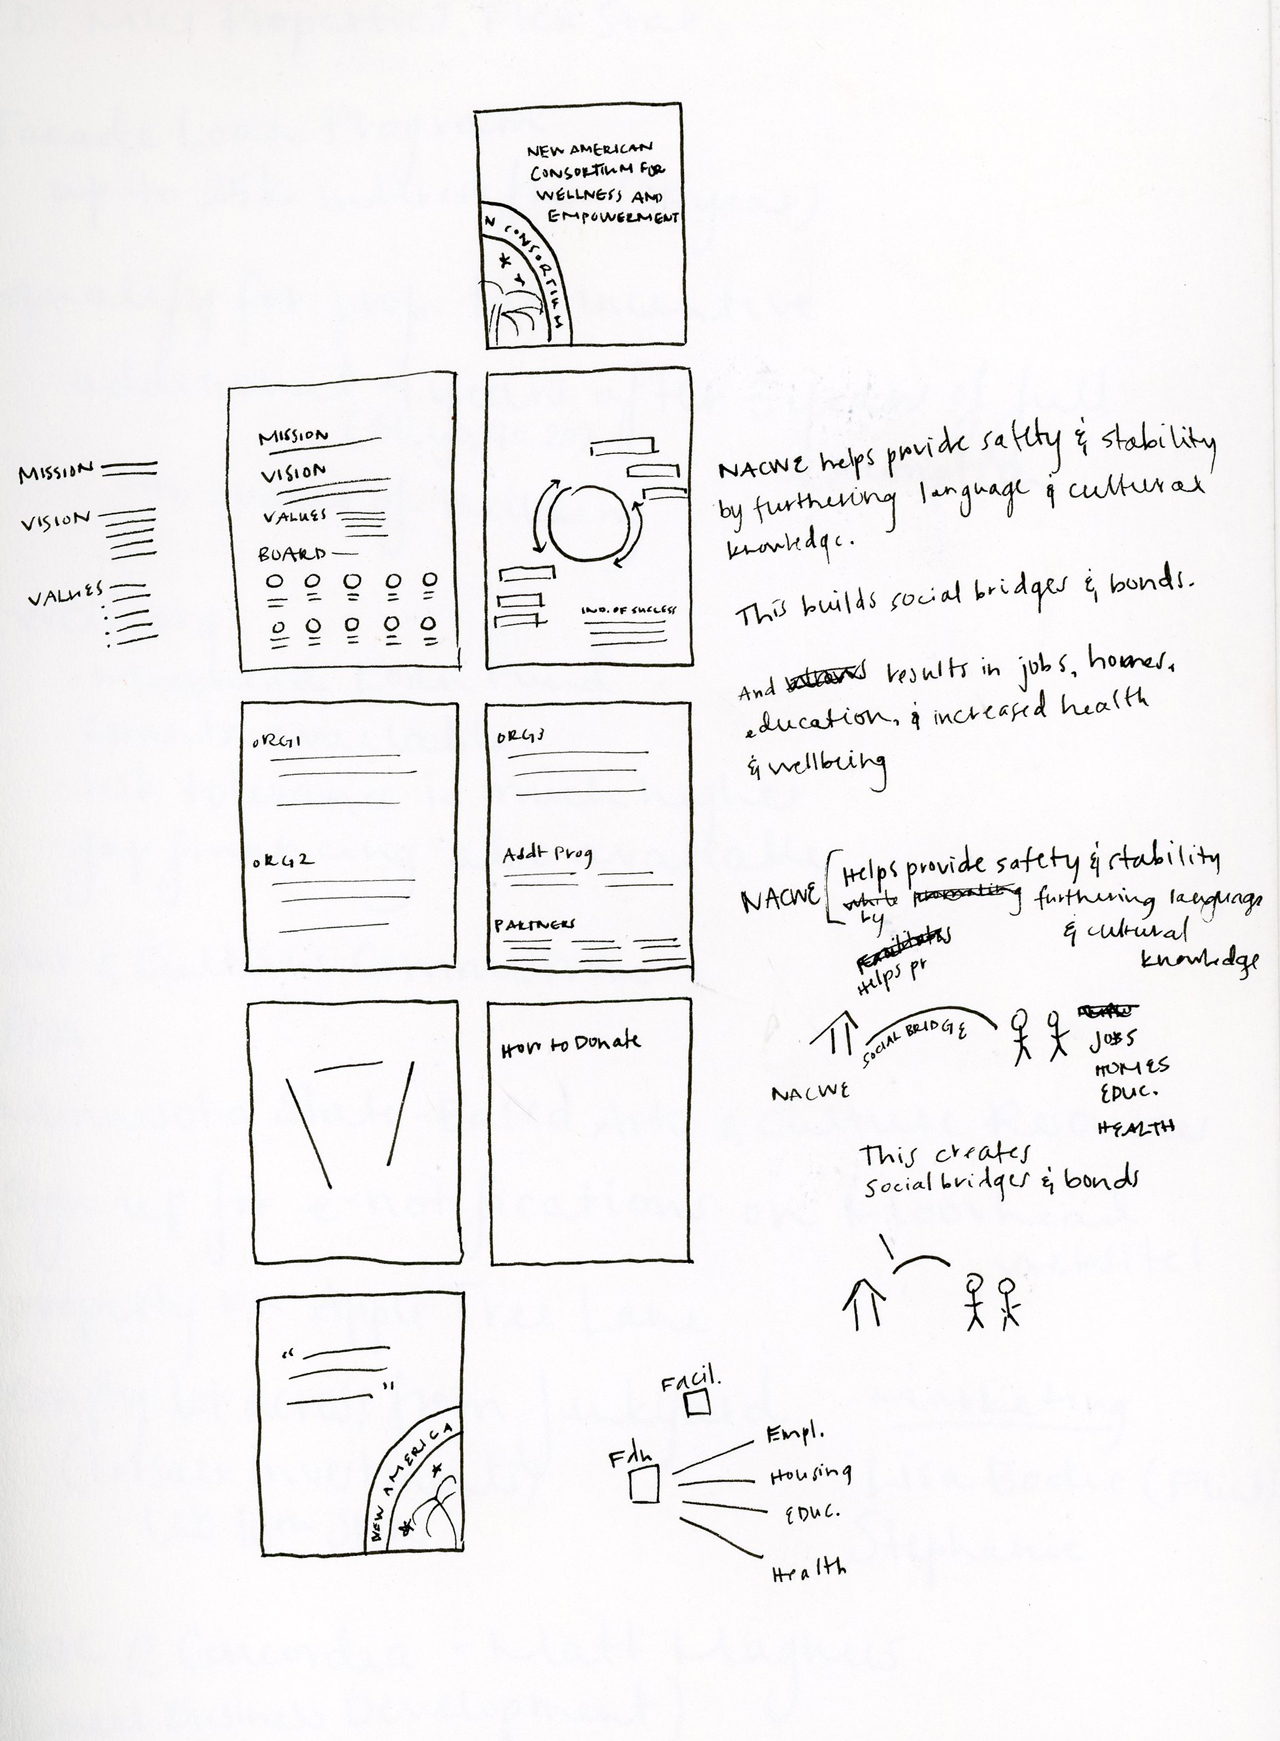 NEW AMERICAN
CONSORTIUM FOR
WELLNESS AND
EMPOWERMENT
N CONSORTIUM
MISSION
VISION
VALUES
MISSION
VISION
VALUES
BOARD
IND. OF SUCCESS
NACWE helps provide safety & stability
by furthering language & cultural
knowledge.
This builds social bridges & bonds.
And results in jobs, homes,
education, & increased health
& wellbeing
ORG1
ORG2
ORG3
Addt Prog
PARTNERS
NACWE
Helps provide safety & stability
while promoting furthering language
by
& cultural
knowledge
Facilitates
Helps pr
SOCIAL BRIDGE
NACWE
JOBS
HOMES
EDUC.
HEALTH
This creates
social bridges & bonds
How to Donate
“
”
NEW AMERICA
Facil.
Fdn
Empl.
Housing
EDUC.
Health